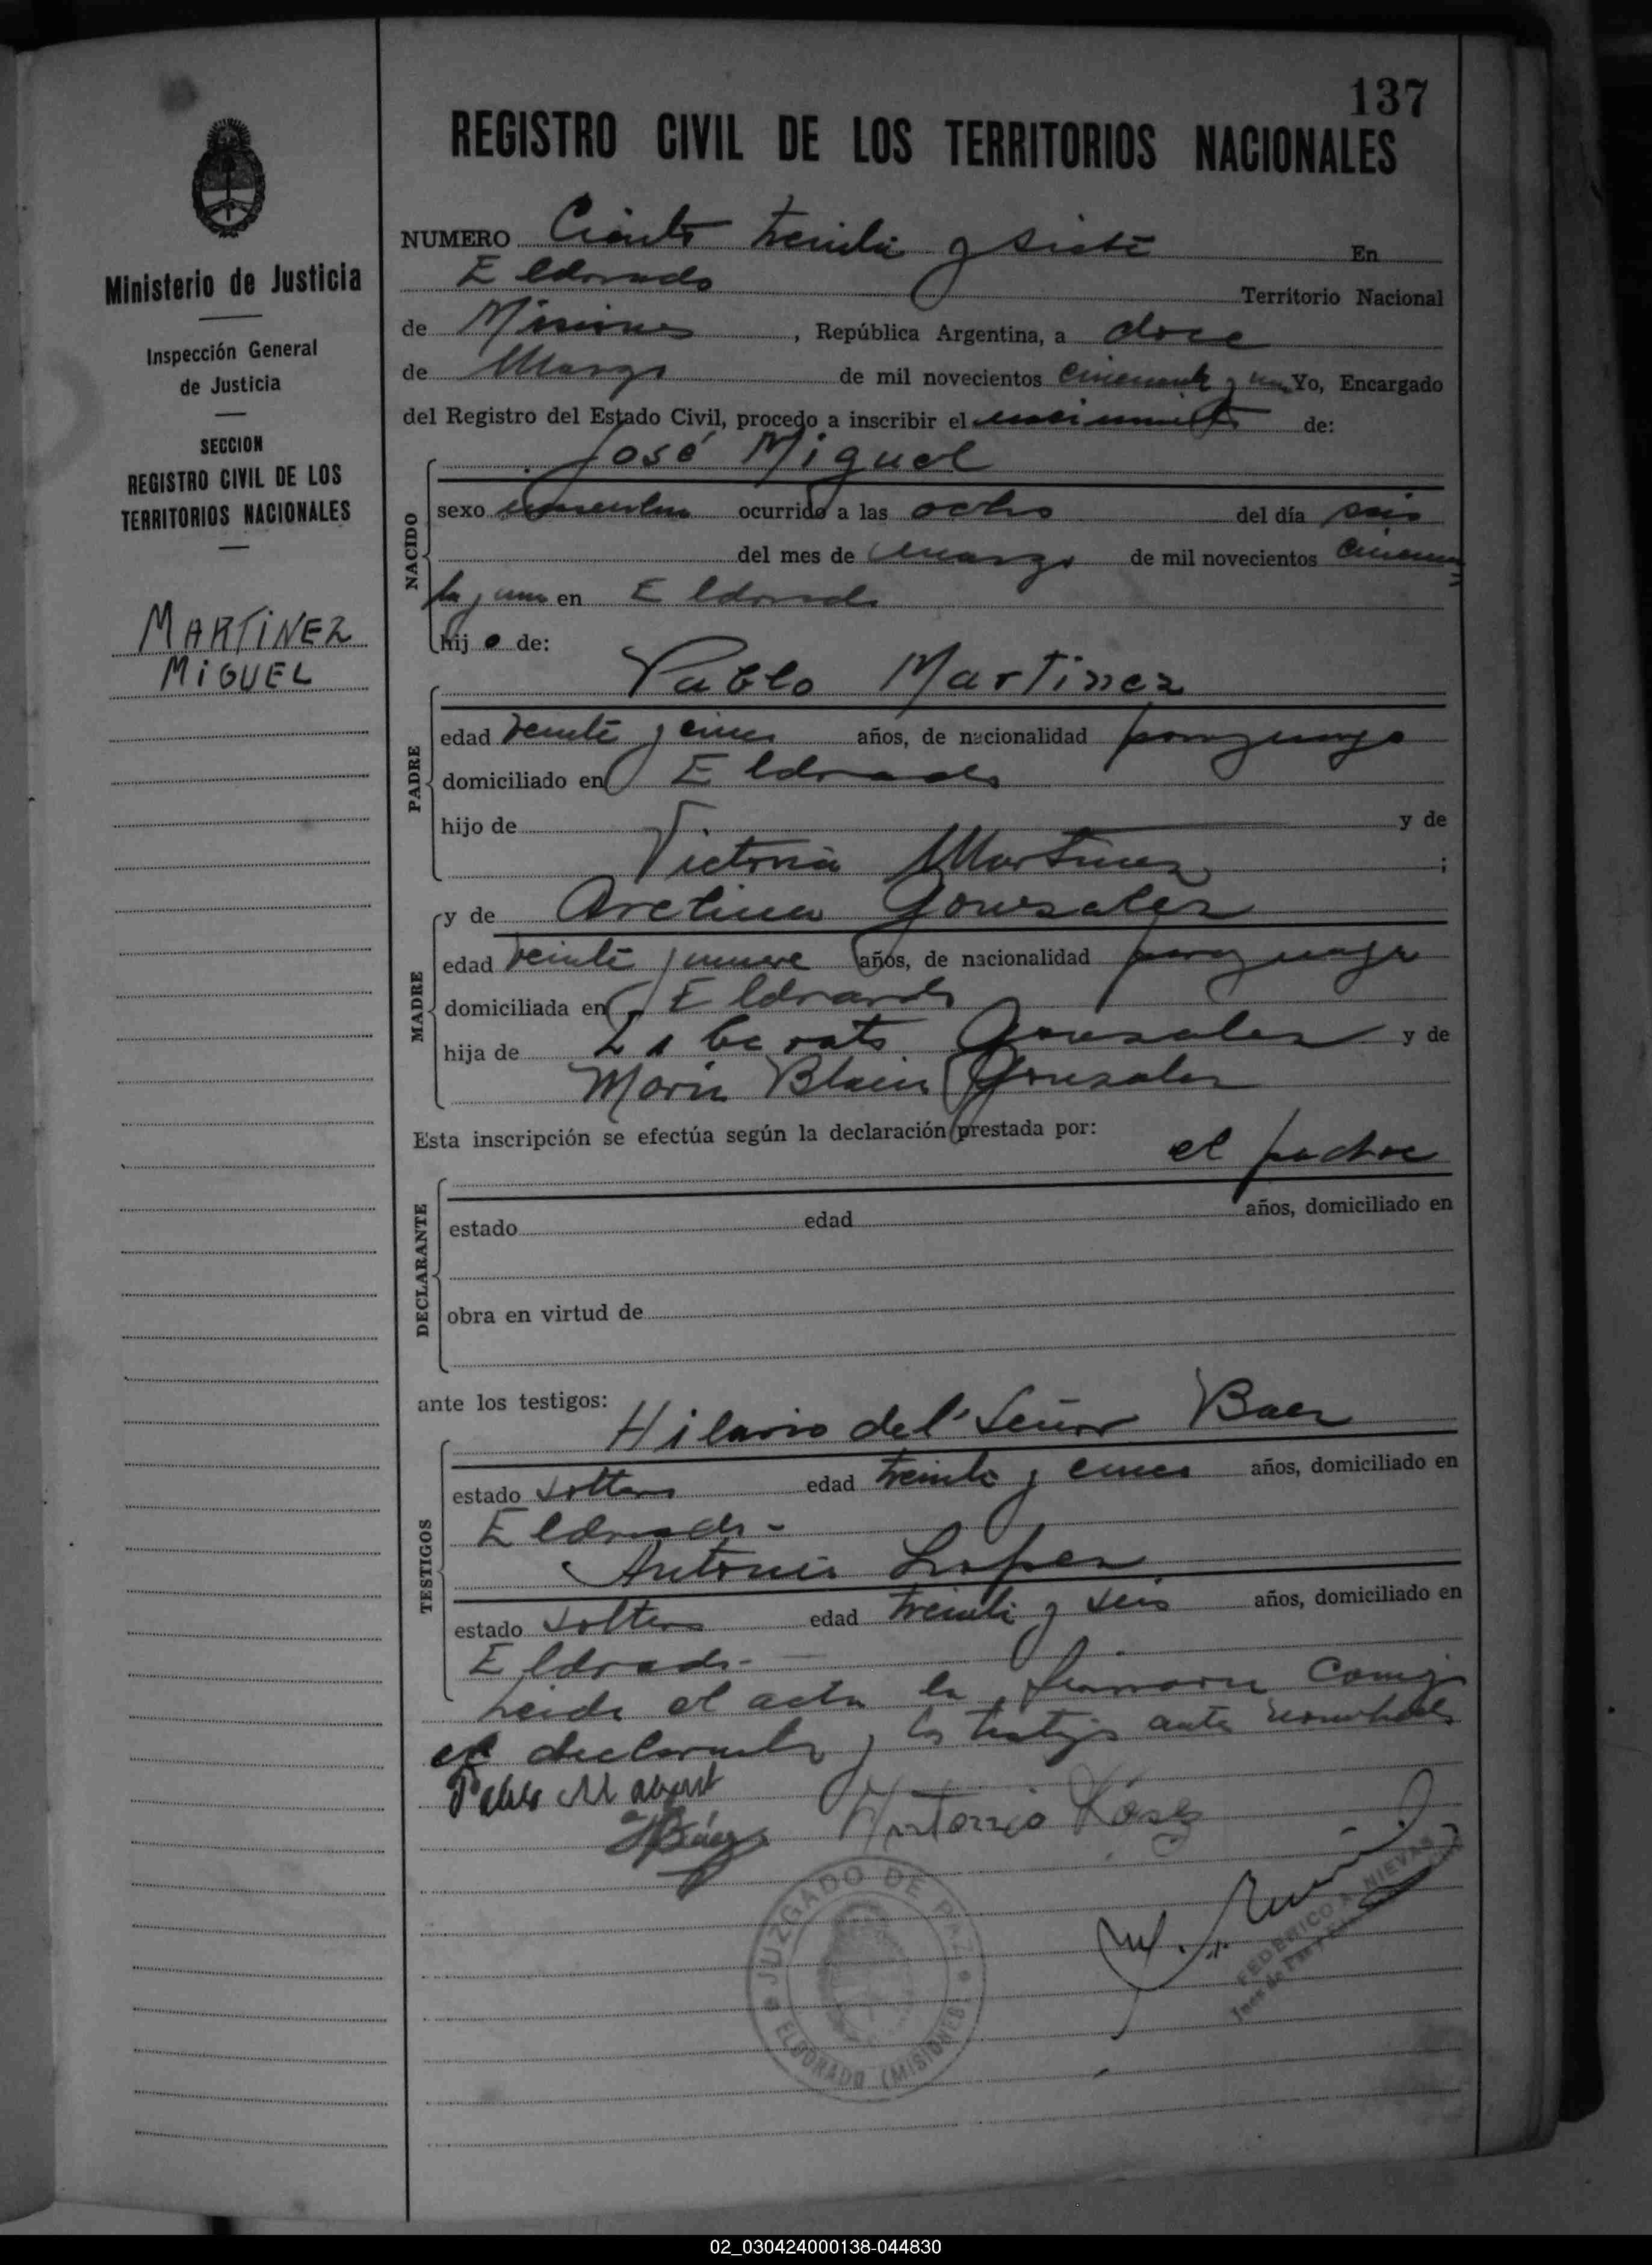 137
REGISTRO CIVIL DE LOS TERRITORIOS NACIONALES
Ministerio de Justicia
Inspección General
de Justicia
SECCION
REGISTRO CIVIL DE LOS
TERRITORIOS NACIONALES
MARTINEZ
MIGUEL
NUMERO Ciento treinta y siete En
Eldorado Territorio Nacional
de Misiones, República Argentina, a doce
de Marzo de mil novecientos cincuenta y uno Yo, Encargado
del Registro del Estado Civil, procedo a inscribir el nacimiento de:
José Miguel
NACIDO
sexo masculino ocurrido a las ocho del día seis
del mes de marzo de mil novecientos cincuen
ta y uno en Eldorado
hijo de:
Pablo Martinez
PADRE
edad veinte y cinco años, de nacionalidad paraguayo
domiciliado en Eldorado
hijo de y de
Victoria Martinez ;
y de Gonzalez
MADRE
edad veinte y nueve años, de nacionalidad paraguaya
domiciliada en Eldorado
hija de Liberato Gonzalez y de
Maria Gonzalez
Esta inscripción se efectúa según la declaración prestada por:
el padre
DECLARANTE
estado edad años, domiciliado en
obra en virtud de
ante los testigos:
Hilario del Señor Baez
TESTIGOS
estado soltero edad treinta y cinco años, domiciliado en
Eldorado -
Antonio Lopez
estado soltero edad treinta y seis años, domiciliado en
Eldorado -
Leida el acta la firmaron conmigo
el declarante y los testigos ante nombrados
Pablo
HBáez Antonio
JUZGADO DE PAZ
ELDORADO (MISIONES)
FEDERICO A. NIEVAS
Juez de Paz
02_030424000138-044830